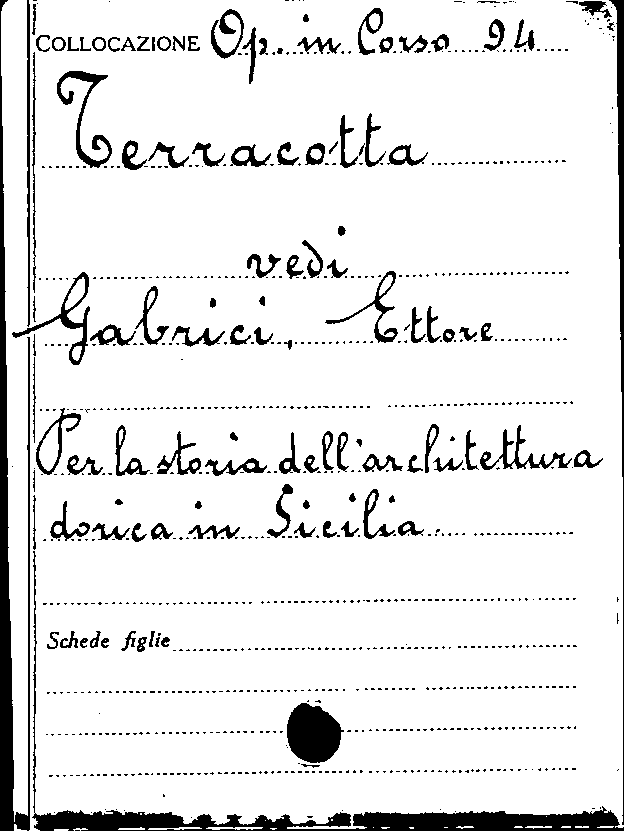 COLLOCAZIONE Op. in Corso 94
Terracotta
vedi
Gabrici, Ettore
Per la storia dell'architettura
dorica in Sicilia.
Schede figlie